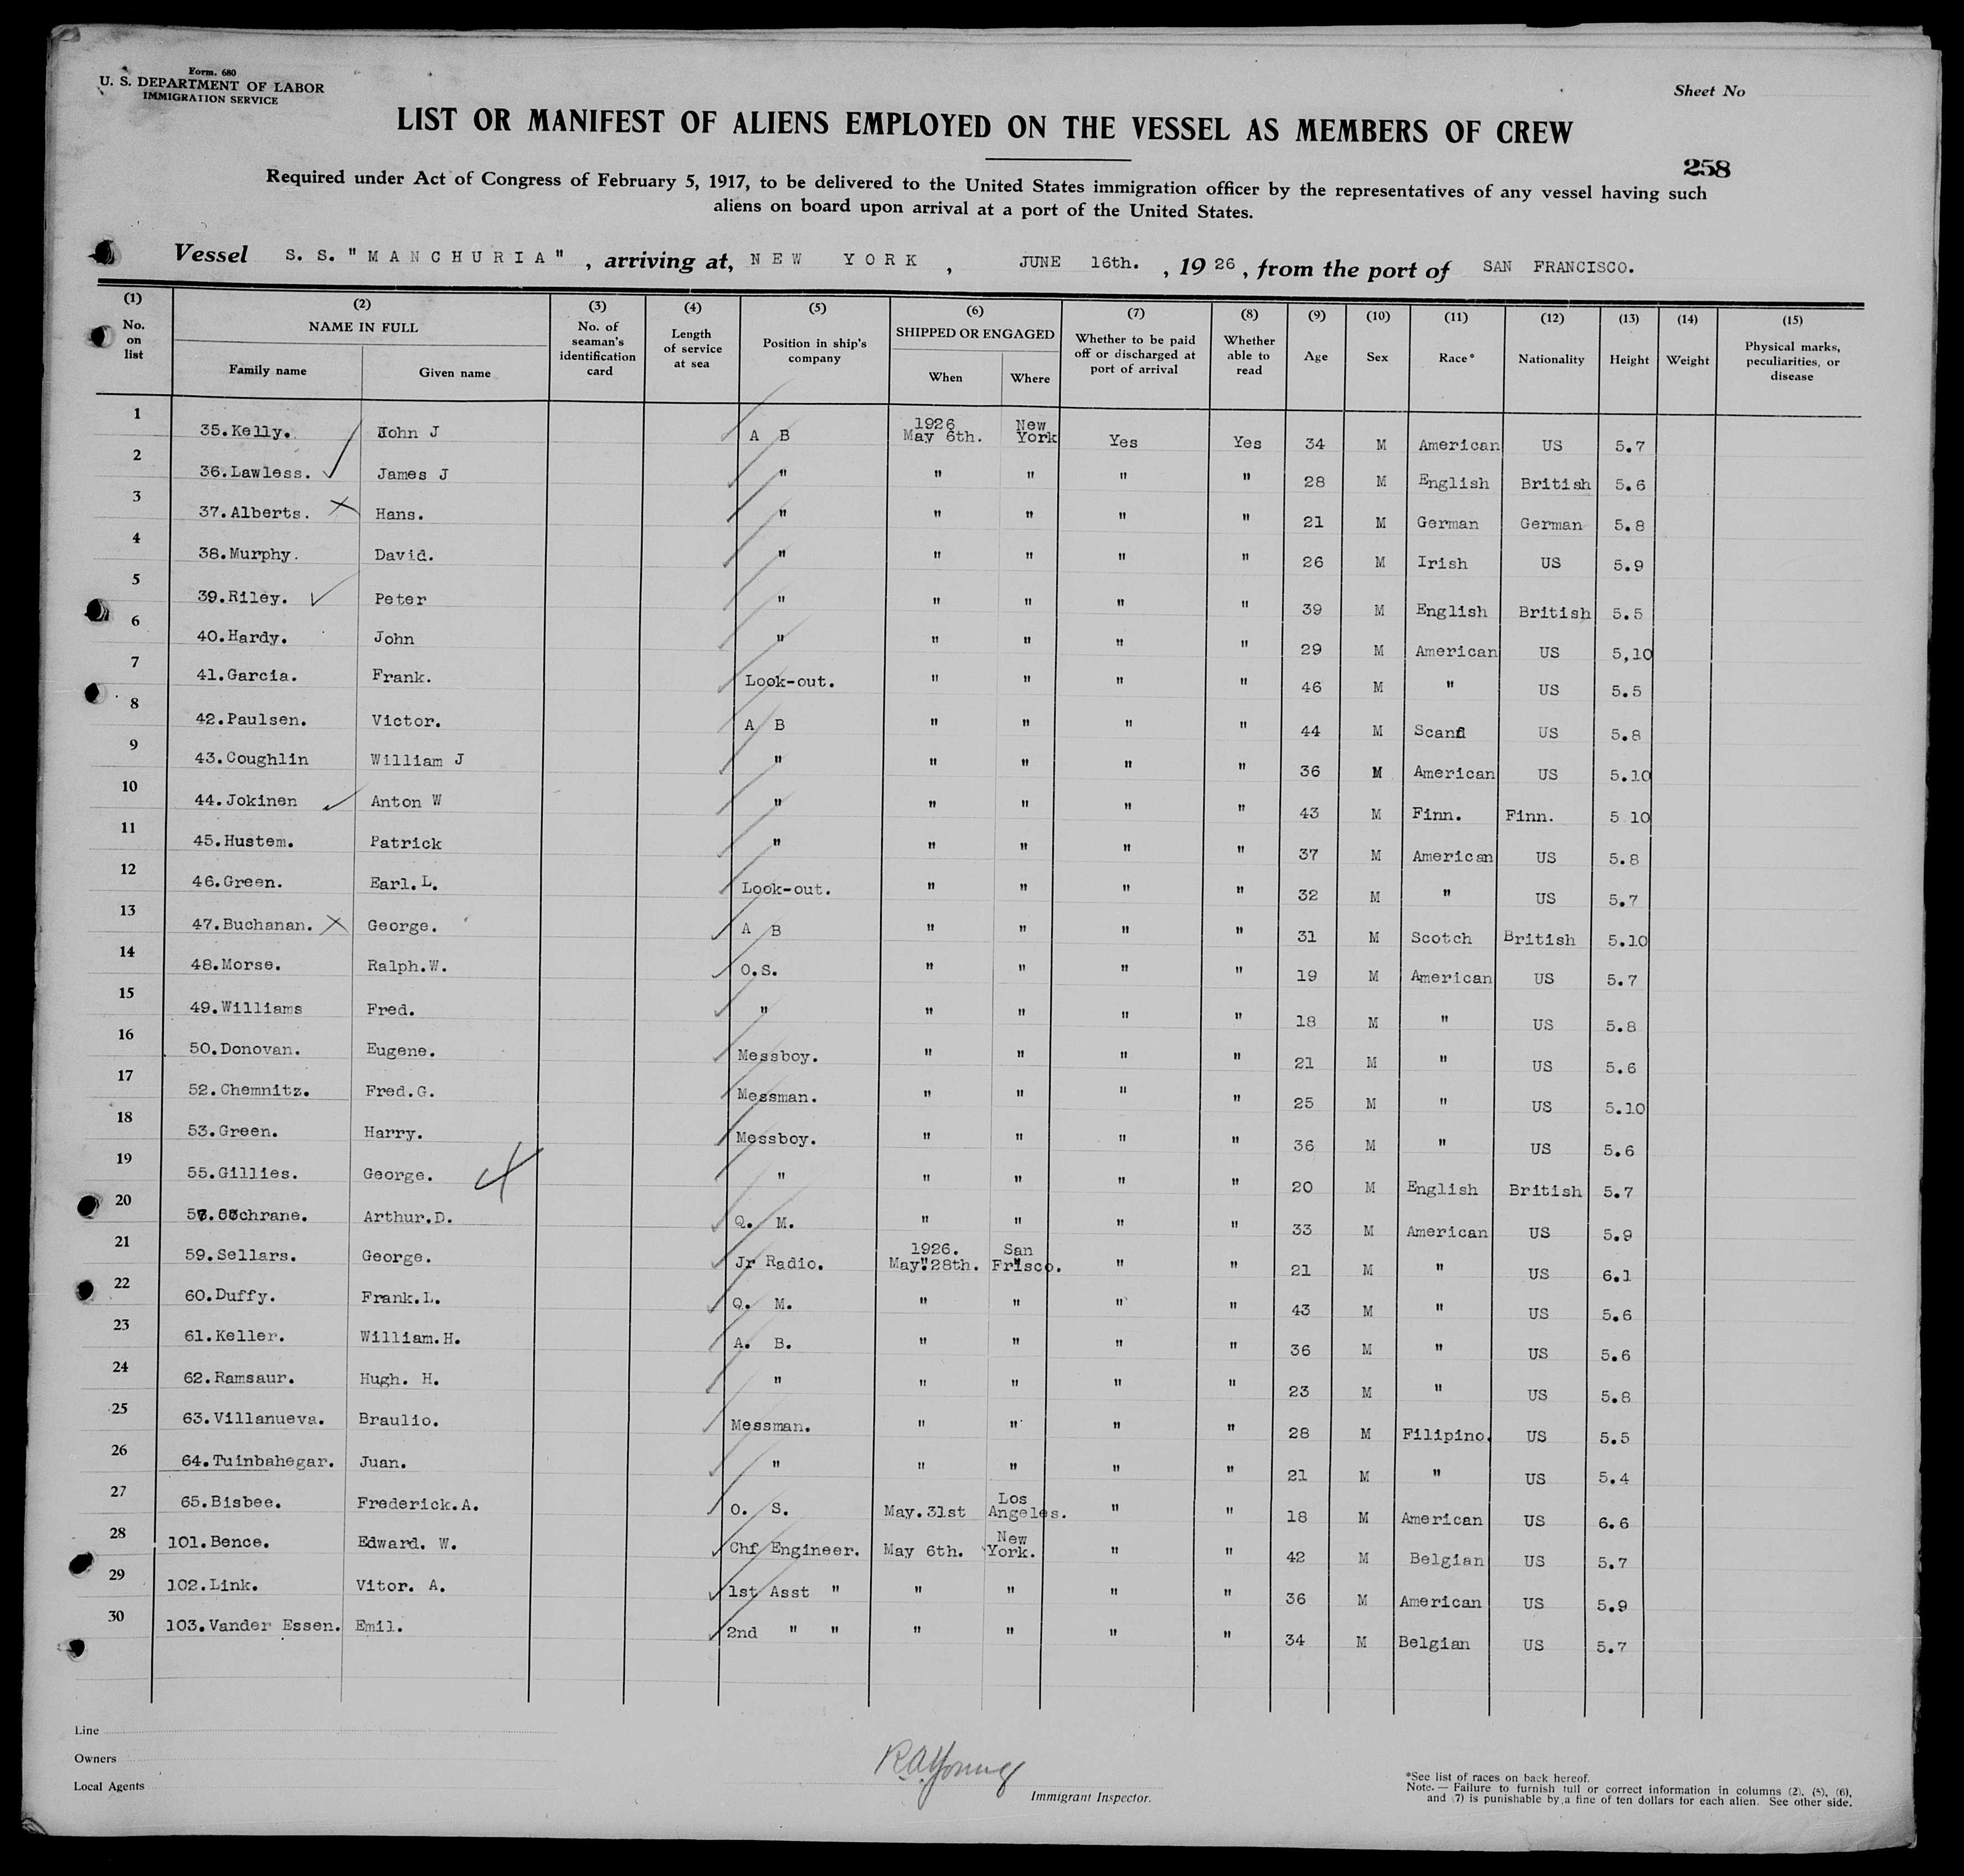 Form. 680
U. S. DEPARTMENT OF LABOR
IMMIGRATION SERVICE
Sheet No
LIST OR MANIFEST OF ALIENS EMPLOYED ON THE VESSEL AS MEMBERS OF CREW
258
Required under Act of Congress of February 5, 1917, to be delivered to the United States immigration officer by the representatives of any vessel having such
aliens on board upon arrival at a port of the United States.
Vessel S. S. "MANCHURIA" , arriving at, NEW YORK , JUNE 16th. , 19 26 , from the port of SAN FRANCISCO.
(1) No. on list (2) NAME IN FULL Family name Given name (3) No. of seaman's identification card (4) Length of service at sea (5) Position in ship's company (6) SHIPPED OR ENGAGED When Where (7) Whether to be paid off or discharged at port of arrival (8) Whether able to read (9) Age (10) Sex (11) Race* (12) Nationality (13) Height (14) Weight (15) Physical marks, peculiarities, or disease
1 35.Kelly. John J A B 1926 May 6th. New York Yes Yes 34 M American US 5.7
2 36.Lawless. James J " " " " " 28 M English British 5.6
3 37.Alberts. Hans. " " " " " 21 M German German 5.8
4 38.Murphy. David. " " " " " 26 M Irish US 5.9
5 39.Riley. Peter " " " " " 39 M English British 5.5
6 40.Hardy. John " " " " " 29 M American US 5,10
7 41.Garcia. Frank. Look-out. " " " " 46 M " US 5.5
8 42.Paulsen. Victor. A B " " " " 44 M Scand US 5.8
9 43.Coughlin William J " " " " " 36 M American US 5.10
10 44.Jokinen Anton W " " " " " 43 M Finn. Finn. 5 10
11 45.Hustem. Patrick " " " " " 37 M American US 5.8
12 46.Green. Earl.L. Look-out. " " " " 32 M " US 5.7
13 47.Buchanan. George. A B " " " " 31 M Scotch British 5.10
14 48.Morse. Ralph.W. O.S. " " " " 19 M American US 5.7
15 49.Williams Fred. " " " " " 18 M " US 5.8
16 50.Donovan. Eugene. Messboy. " " " " 21 M " US 5.6
17 52.Chemnitz. Fred.G. Messman. " " " " 25 M " US 5.10
18 53.Green. Harry. Messboy. " " " " 36 M " US 5.6
19 55.Gillies. George. " " " " " 20 M English British 5.7
20 Cochrane. Arthur.D. Q. M. " " " " 33 M American US 5.9
21 59.Sellars. George. Jr Radio. 1926. May.28th. San Frisco. " " 21 M " US 6.1
22 60.Duffy. Frank.L. Q. M. " " " " 43 M " US 5.6
23 61.Keller. William.H. A. B. " " " " 36 M " US 5.6
24 62.Ramsaur. Hugh. H. " " " " " 23 M " US 5.8
25 63.Villanueva. Braulio. Messman. " " " " 28 M Filipino. US 5.5
26 64.Tuinbahegar. Juan. " " " " " 21 M " US 5.4
27 65.Bisbee. Frederick.A. O. S. May.31st Los Angeles. " " 18 M American US 6.6
28 101.Bence. Edward. W. Chf Engineer. May 6th. New York. " " 42 M Belgian US 5.7
29 102.Link. Vitor. A. 1st Asst " " " " " 36 M American US 5.9
30 103.Vander Essen. Emil. 2nd " " " " " " 34 M Belgian US 5.7
Line
Owners
Local Agents
R.A. Young
Immigrant Inspector.
*See list of races on back hereof.
Note.— Failure to furnish full or correct information in columns (2), (5), (6),
and (7) is punishable by a fine of ten dollars for each alien. See other side.